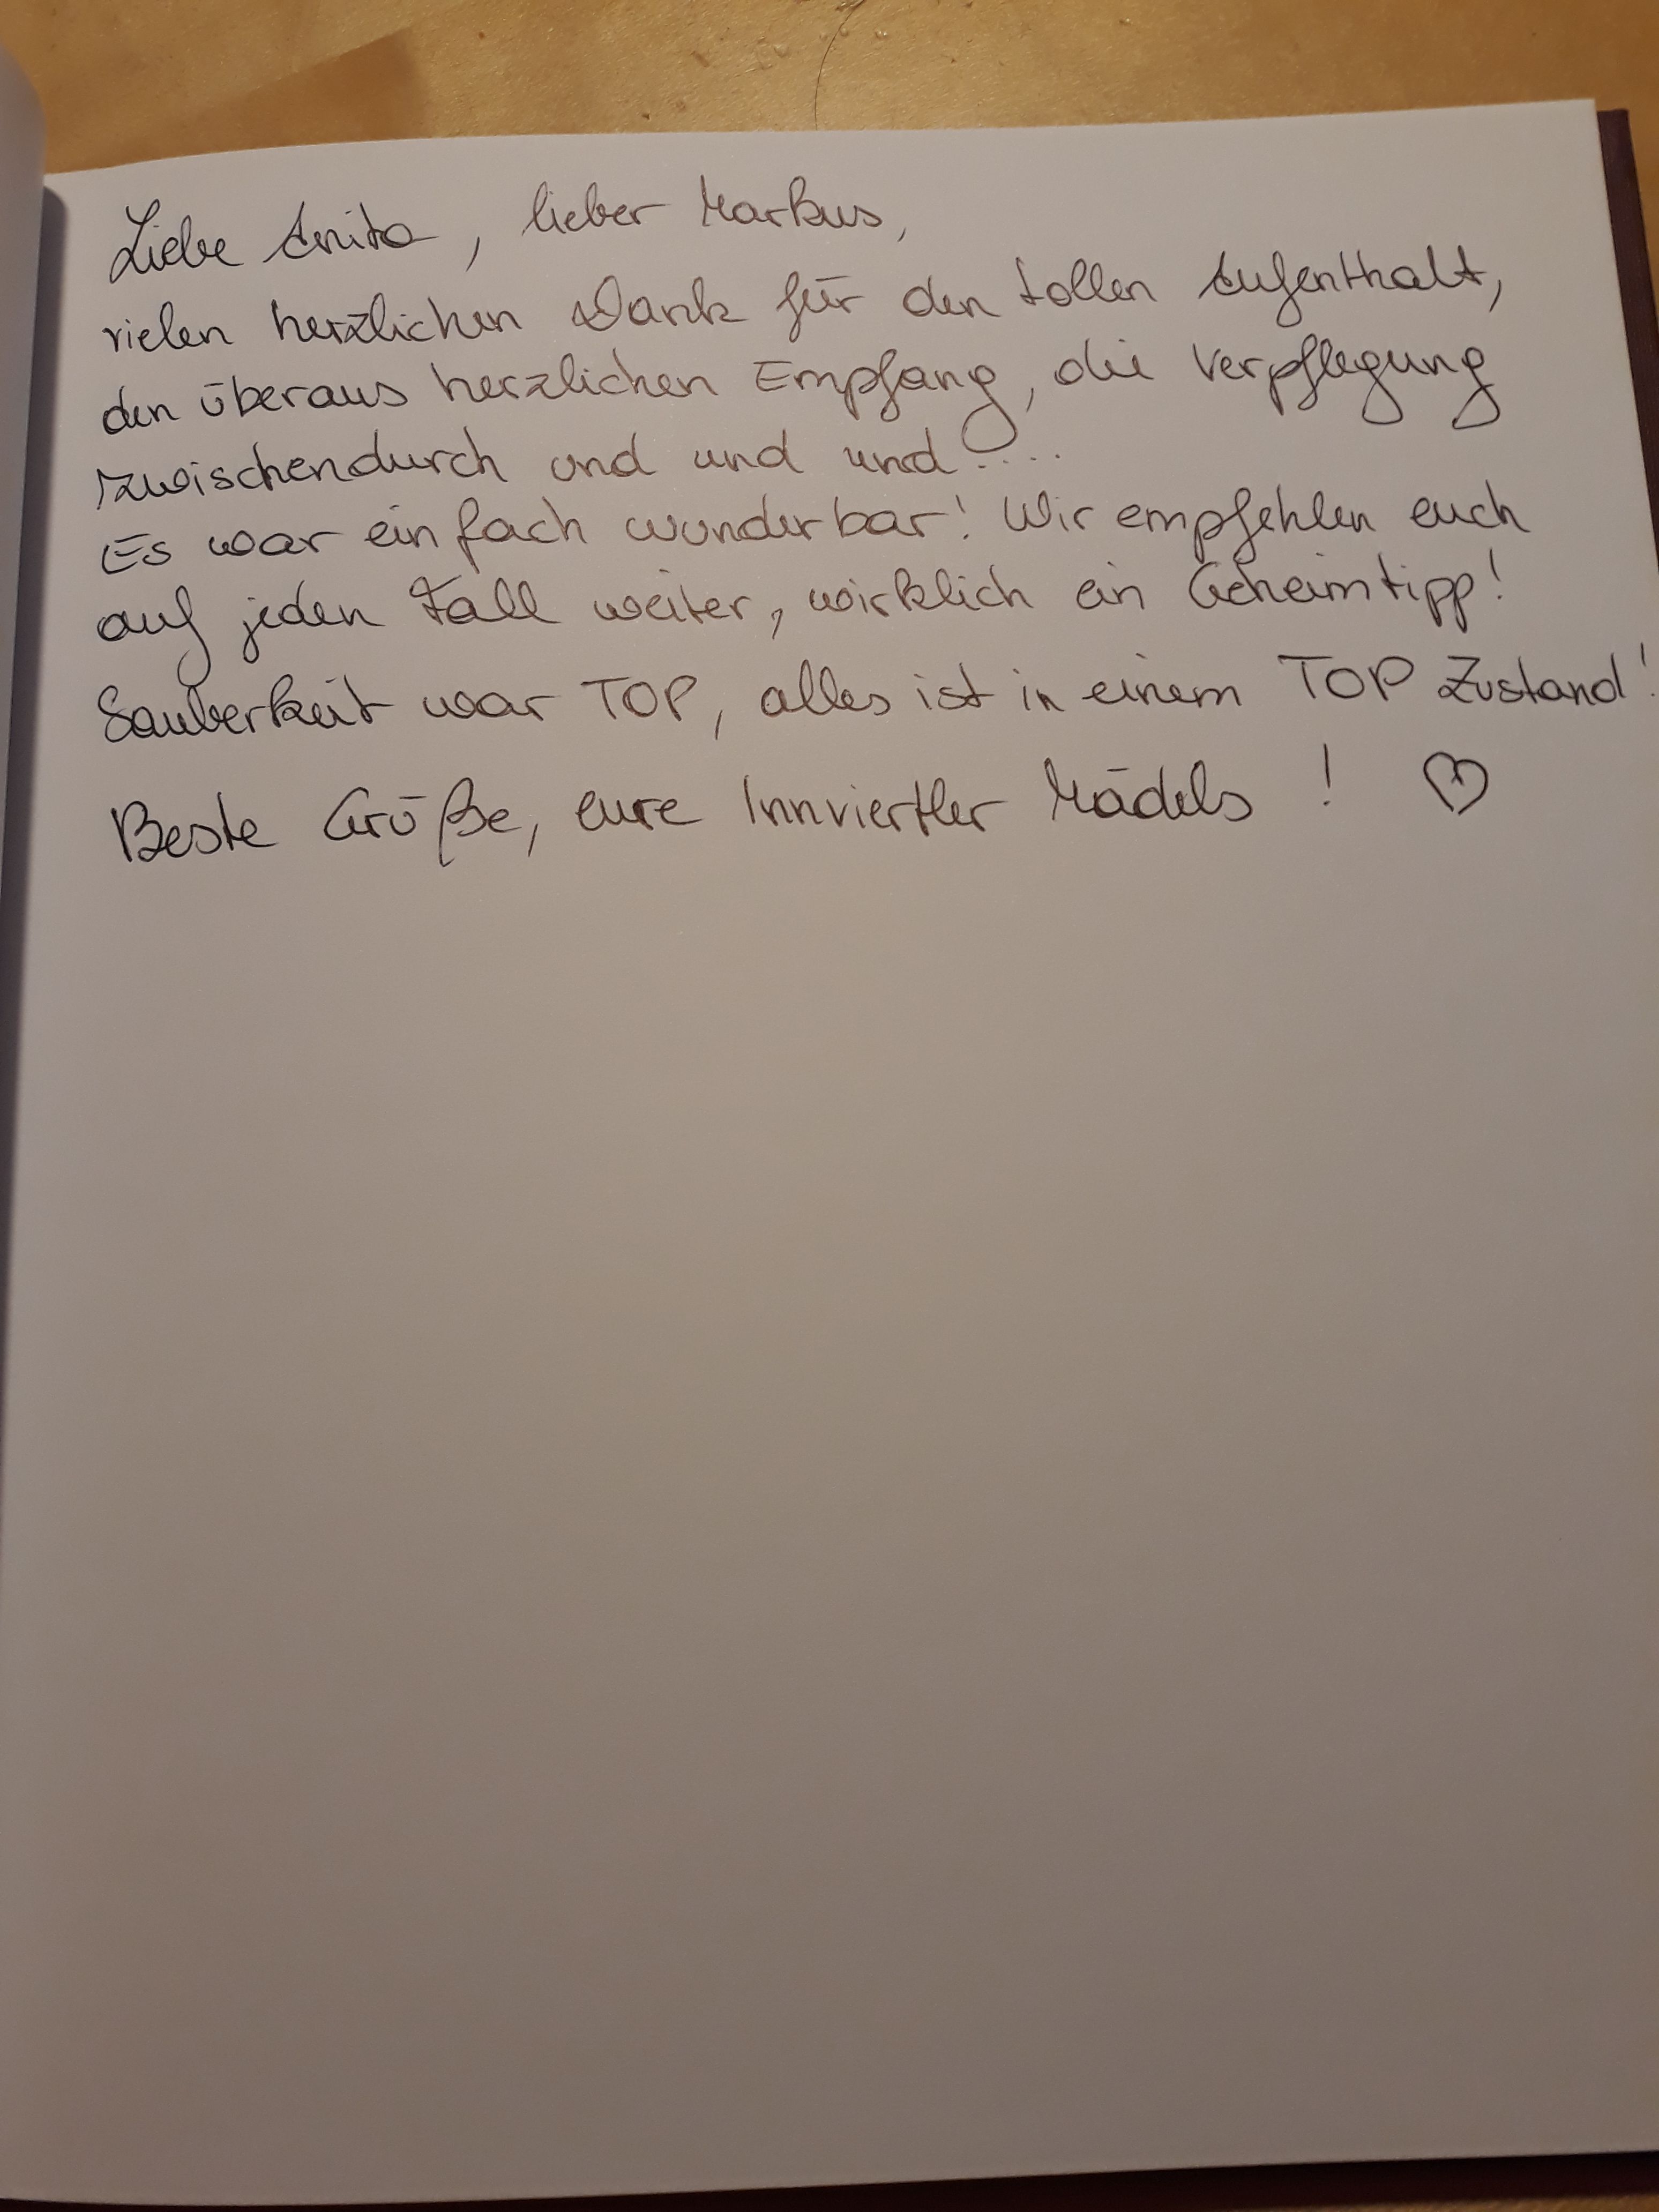 Liebe Anita, lieber Markus,
vielen herzlichen Dank für den tollen Aufenthalt,
den überaus herzlichen Empfang, die Verpflegung
zwischendurch und und und.....
Es war einfach wunderbar! Wir empfehlen euch
auf jeden Fall weiter, wirklich ein Geheimtipp!
Sauberkeit war TOP, alles ist in einem TOP Zustand!
Beste Grüße, eure Innviertler Mädels ! ♡